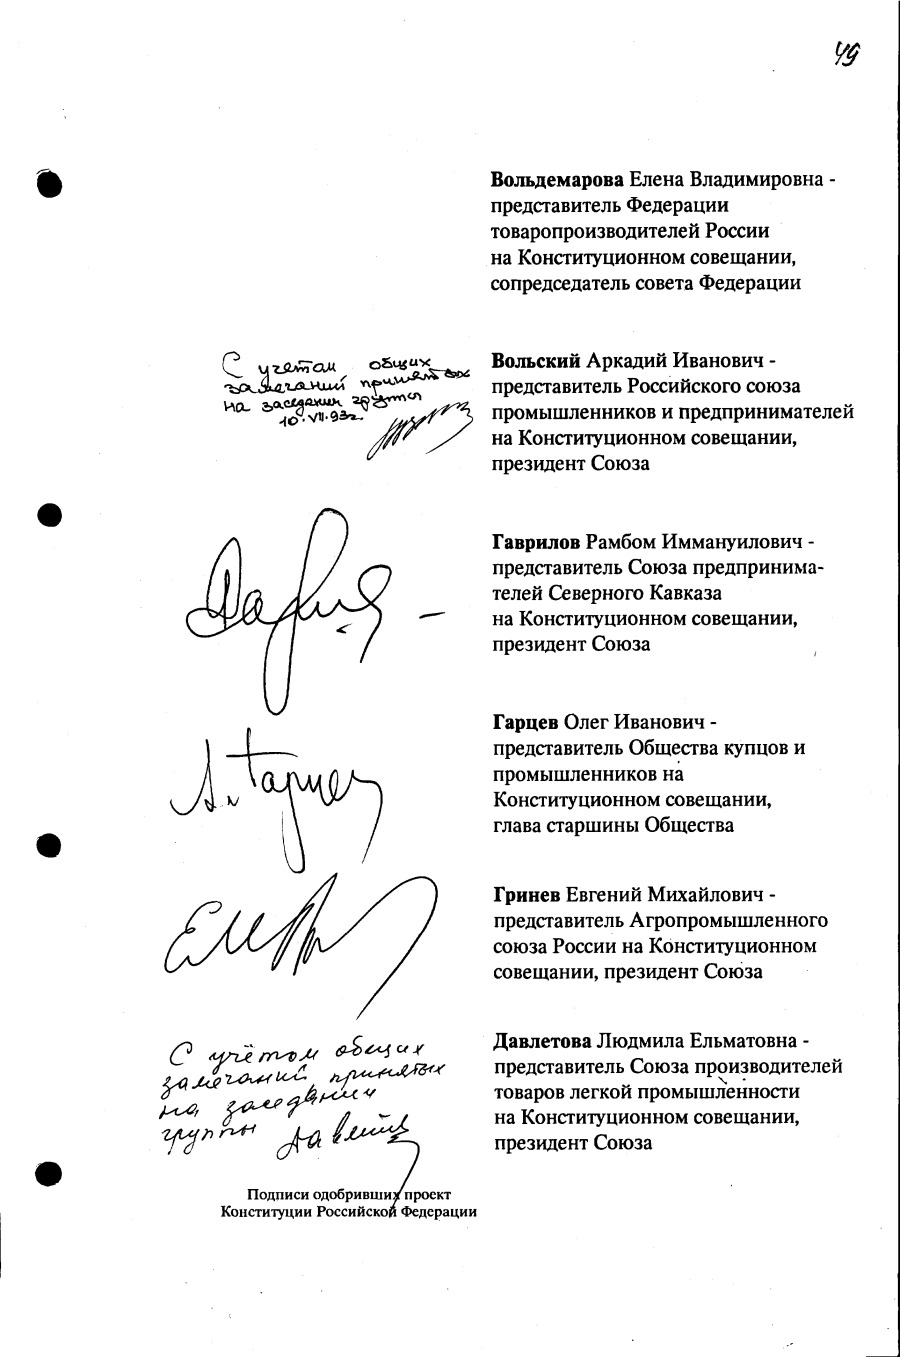 49
Вольдемарова Елена Владимировна -
представитель Федерации
товаропроизводителей России
на Конституционном совещании,
сопредседатель совета Федерации
С учетом общих
замечаний принятых
на заседании группы
10.VII.93г.
Вольский Аркадий Иванович -
представитель Российского союза
промышленников и предпринимателей
на Конституционном совещании,
президент Союза
Гаврилов Рамбом Иммануилович -
представитель Союза предпринима-
телей Северного Кавказа
на Конституционном совещании,
президент Союза
Гарцев Олег Иванович -
представитель Общества купцов и
промышленников на
Конституционном совещании,
глава старшины Общества
Гринев Евгений Михайлович -
представитель Агропромышленного
союза России на Конституционном
совещании, президент Союза
С учётом общих
замечаний, принятых
на заседании
группы
Давлетова Людмила Ельматовна -
представитель Союза производителей
товаров легкой промышленности
на Конституционном совещании,
президент Союза
Подписи одобривших проект
Конституции Российской Федерации